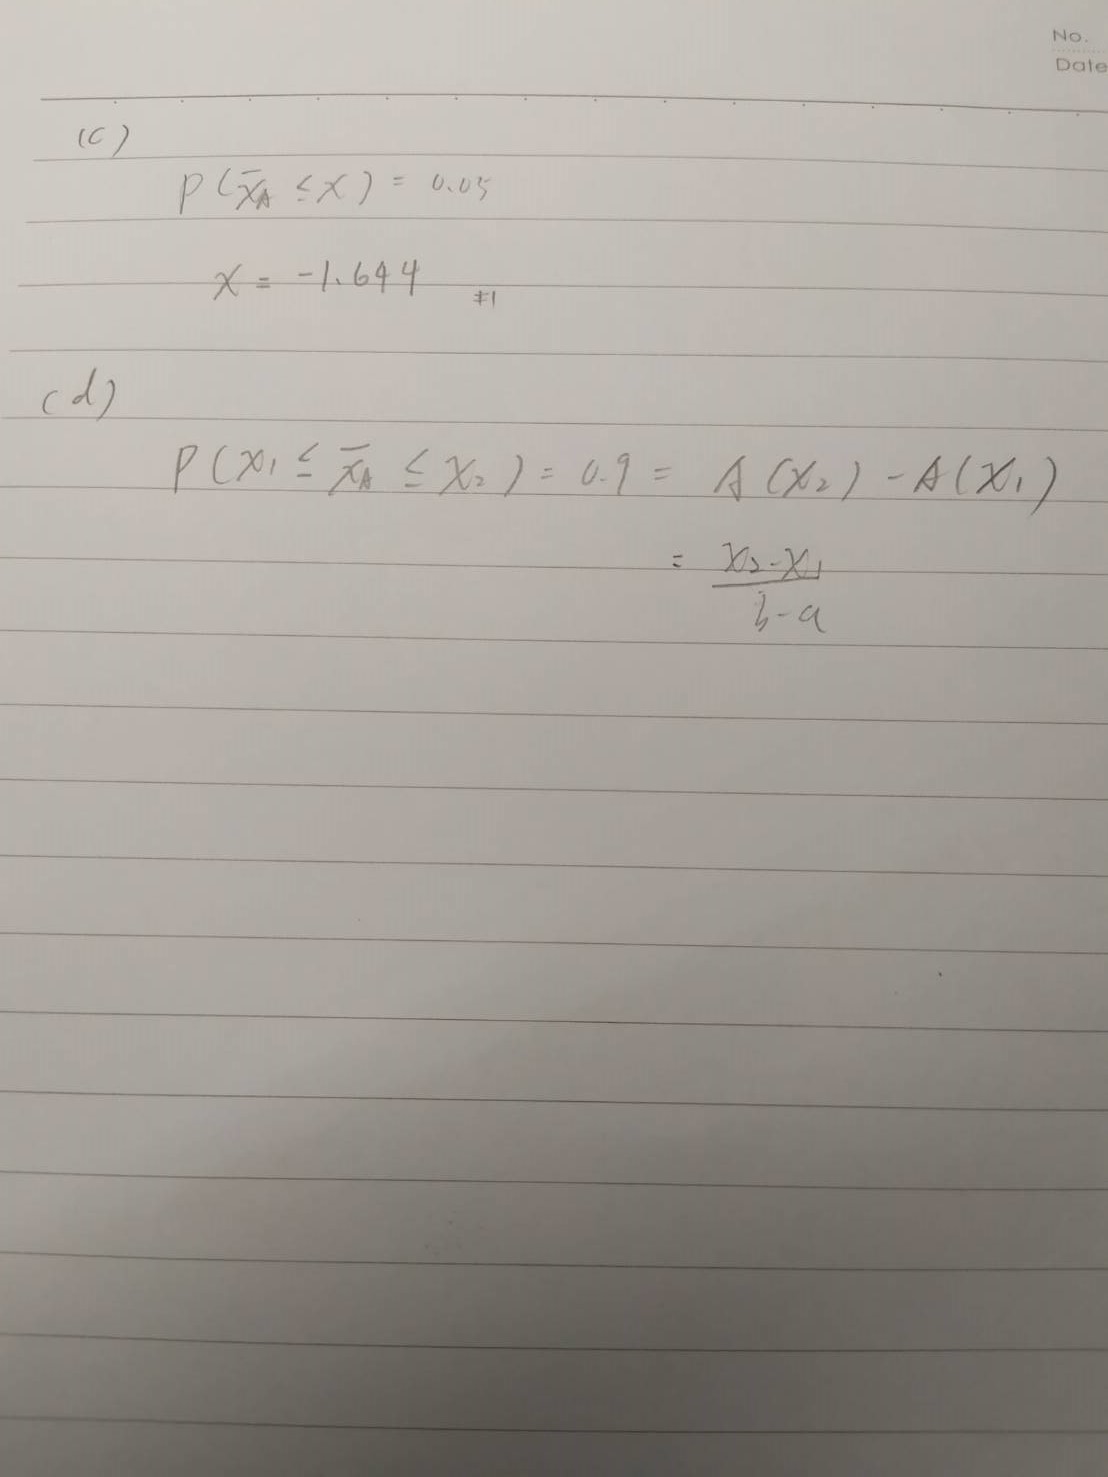 No.
Date
(c)
P(x̄A ≤ x) = 0.05
x = -1.644 #1
(d)
P(x1 ≤ x̄A ≤ x2) = 0.9 = A(x2) - A(x1)
= x2-x1
b-a